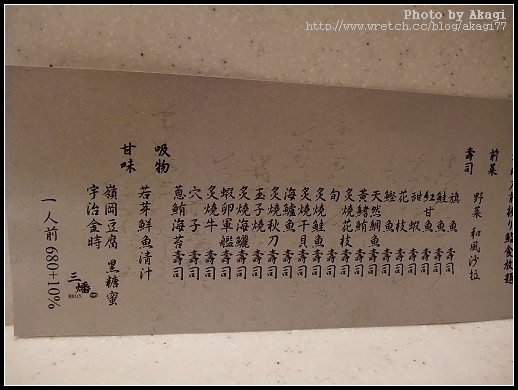 Photo by Akagi
http://www.wretch.cc/blog/akagi77
握り鮨食放題
前菜
野菜 和風沙拉
壽司
旗魚壽司
鮭魚壽司
紅甘魚壽司
甜蝦壽司
花枝壽司
鰹魚壽司
天然鯛魚壽司
黃鰭鮪魚壽司
炙燒花枝壽司
旬魚壽司
炙燒鮭魚壽司
炙燒干貝壽司
海鱸魚壽司
炙燒秋刀壽司
玉子燒壽司
炙燒海鱺壽司
蝦卵軍艦壽司
炙燒牛壽司
穴子壽司
蔥鮪海苔壽司
吸物
若芽鮮魚清汁
甘味
嶺岡豆腐 黑糖蜜
宇治金時
一人前 680+10%
三燔